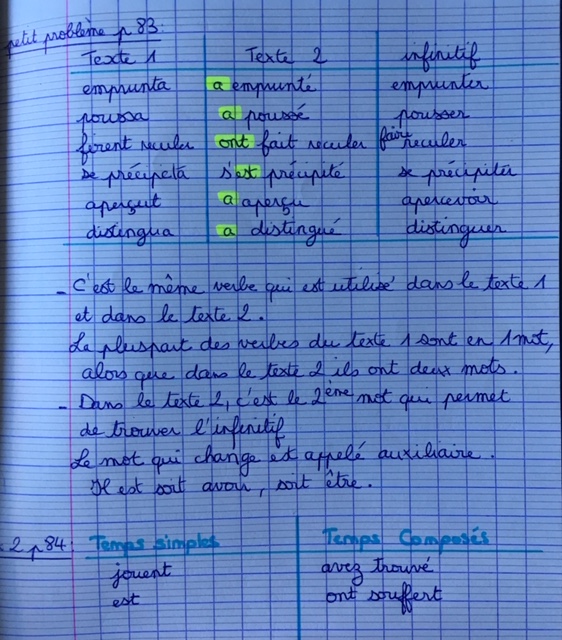 petit problème p 83:
Texte 1 Texte 2 infinitif
emprunta a emprunté emprunter
poussa a poussé pousser
firent reculer ont fait reculer faire reculer
se précipeta s'est précipité se précipiter
aperçut a aperçu apercevoir
distingua a distingué distinguer
- C'est le même verbe qui est utilisé dans le texte 1
et dans le texte 2.
La pluspart des verbes du texte 1 sont en 1 mot,
alors que dans le texte 2 ils ont deux mots.
- Dans le texte 2, c'est le 2ème mot qui permet
de trouver l'infinitif
Le mot qui change est appelé auxiliaire.
Il est soit avoir, soit être.
2 p 84: Temps simples Temps Composés
jouent avez trouvé
est ont souffert